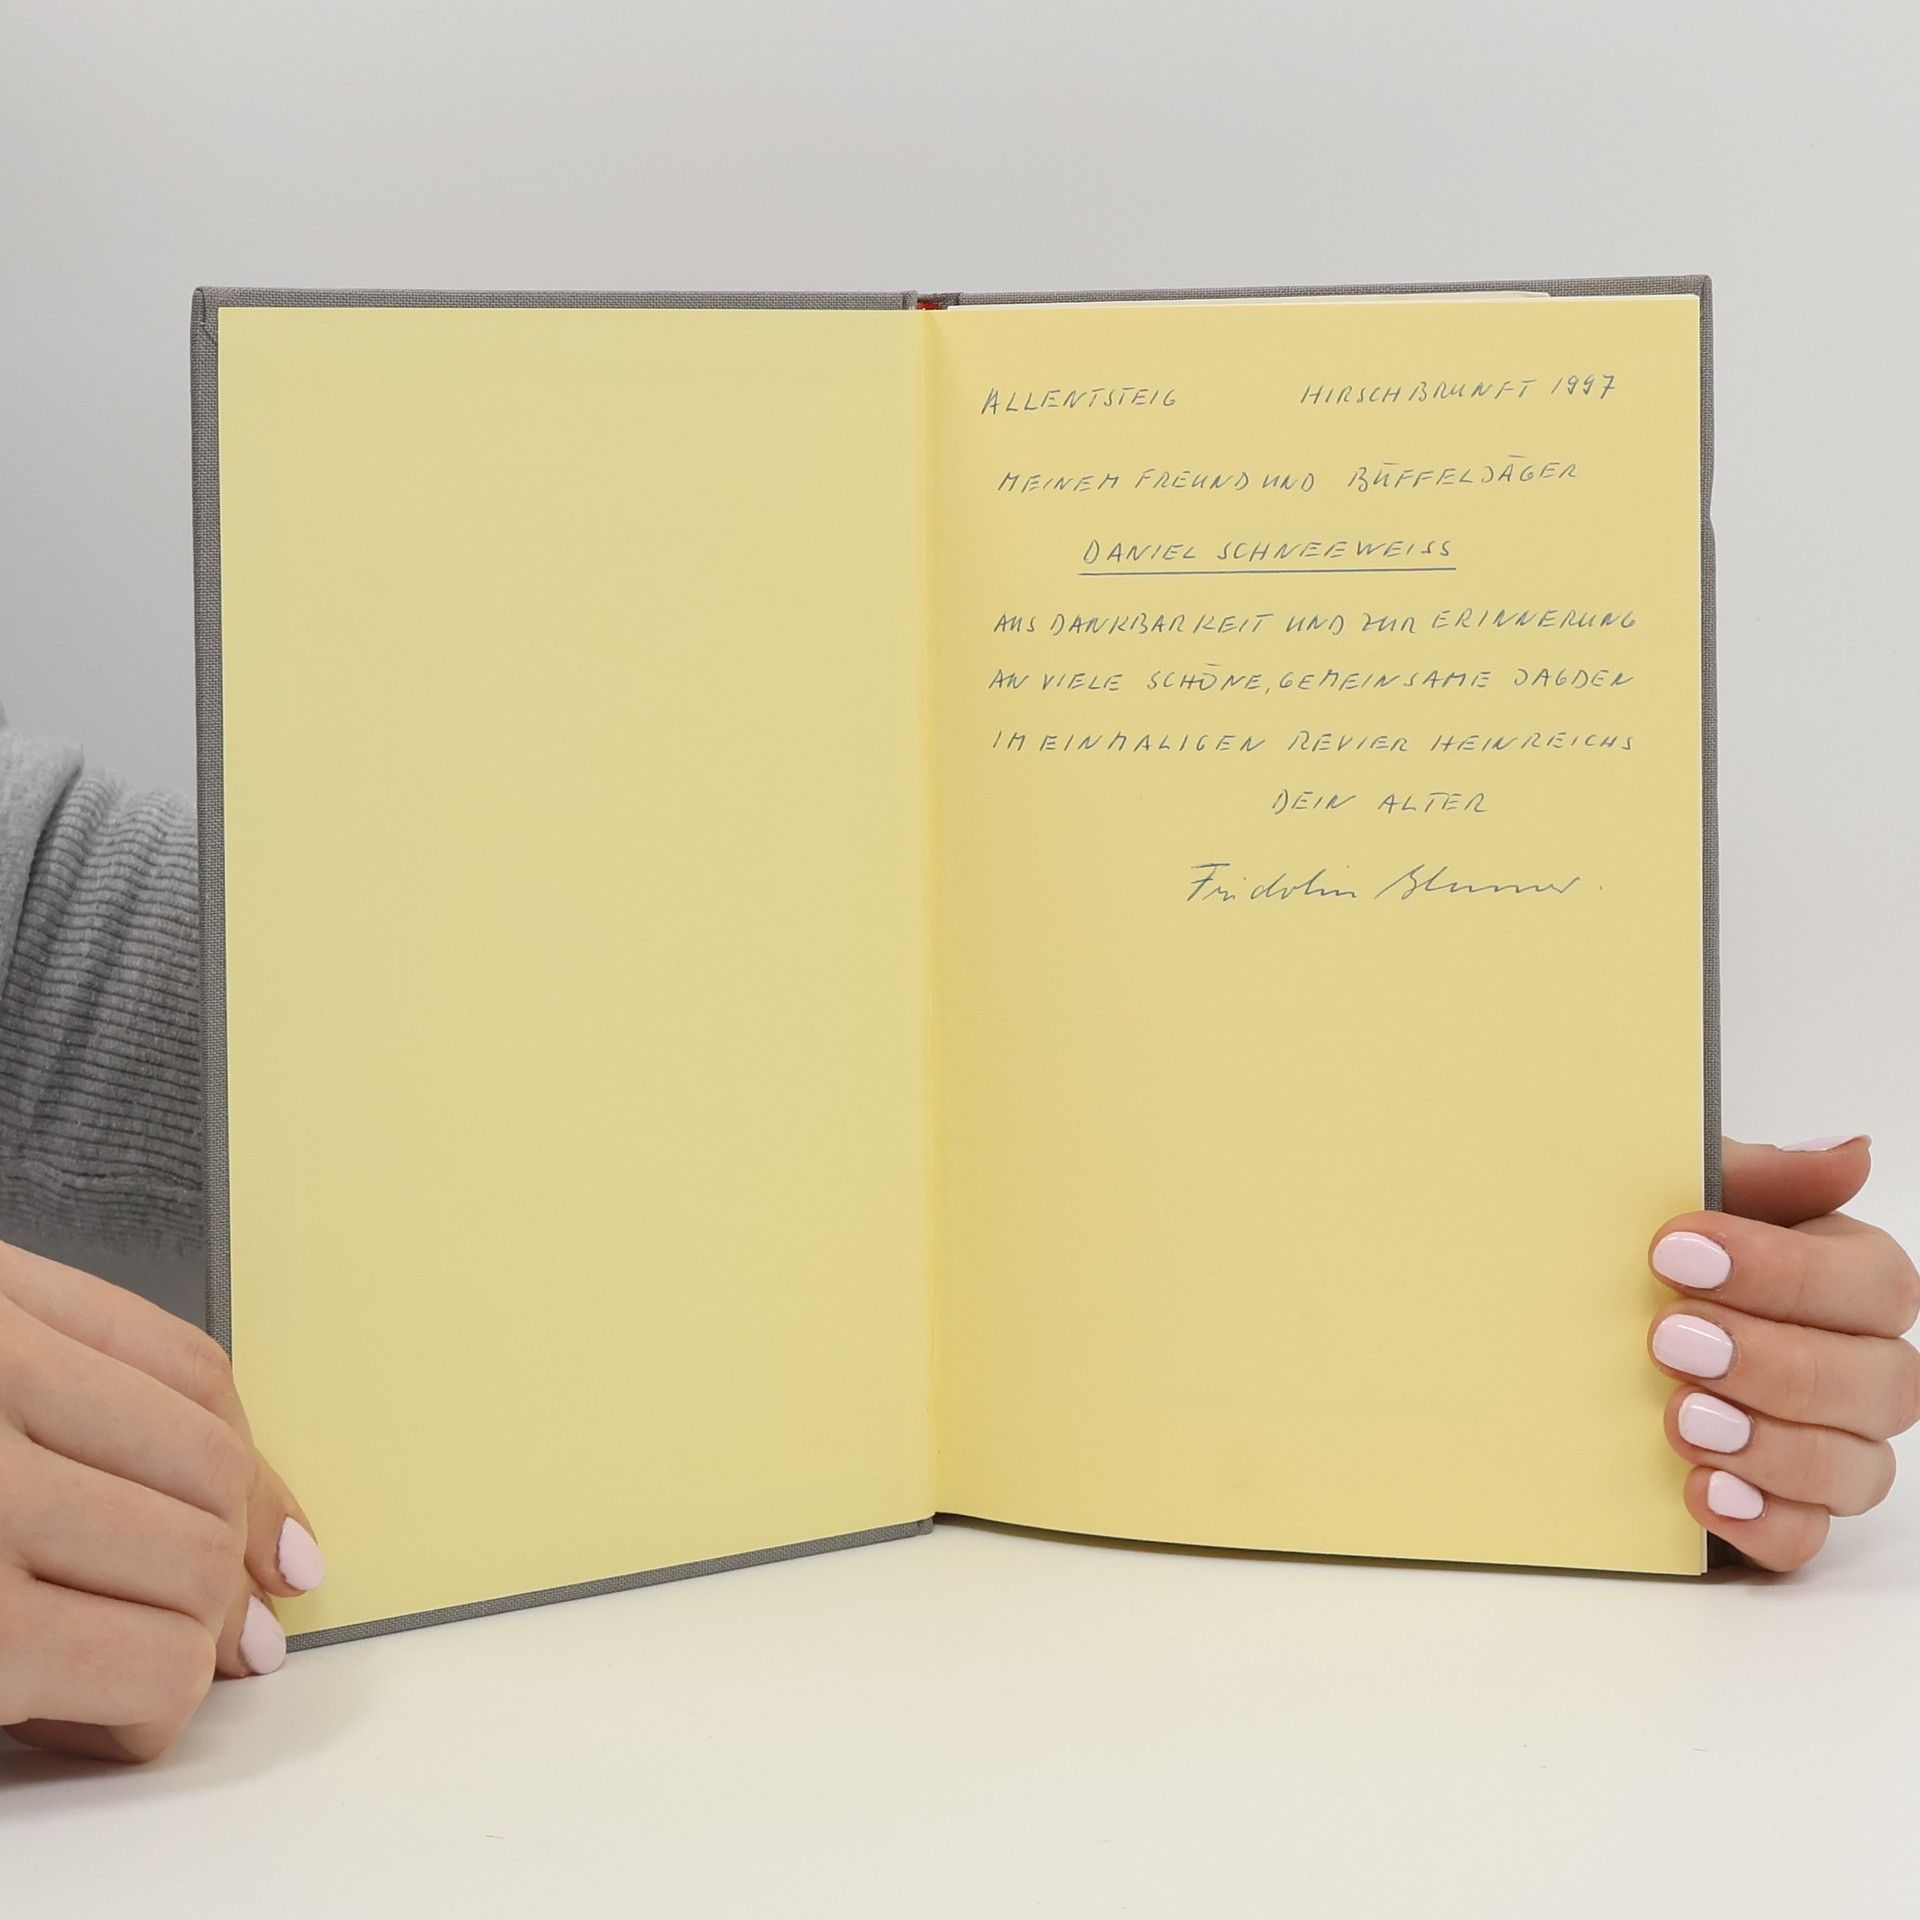 ALLENTSTEIG HIRSCHBRUNFT 1997
MEINEM FREUND UND BÜFFELJÄGER
DANIEL SCHNEEWEISS
AUS DANKBARKEIT UND ZUR ERINNERUNG
AN VIELE SCHÖNE, GEMEINSAME JAGDEN
IM EINMALIGEN REVIER HEINREICHS
DEIN ALTER
Fridolin Blumer.